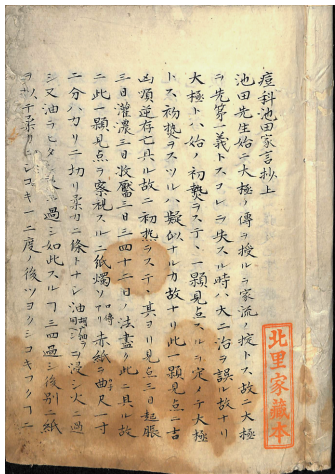 痘科池田家言抄上
池田先生始ニ大極ノ傳ヲ授ルヲ家流ノ掟トス故ニ大極
ヲ先第一義トスコレヲ失スル時ハ大ニ治ヲ誤ル故ナリ
大極トハ始ノ初熱ヲステヽ一顆見点スルヲ定ノチ大極
トス初熱ヲスツルハ擬似ナルカ故ナリ此一顆見点ニ吉
凶順逆存亡具ル故ニ初熱ヲステヽ其ヨリ見点三日起脹
三日灌濃三日收靨三日三四十二日ノ法盡ク此ニ具ル故
ニ此一顆見点ヲ察視スルニ紙燭ソ赤紙ヲ曲尺一寸
二分ハカリニ切リ柔カニ絛トナシ油ヲ浸シ火ニ過
シ又油ヲヒタシ過シ如此スルヿ三四過シ後別ニ紙
ヲ以テ柔カニシコキ二度ノ後ツヨクシコキコノクフ二
北里家藏本